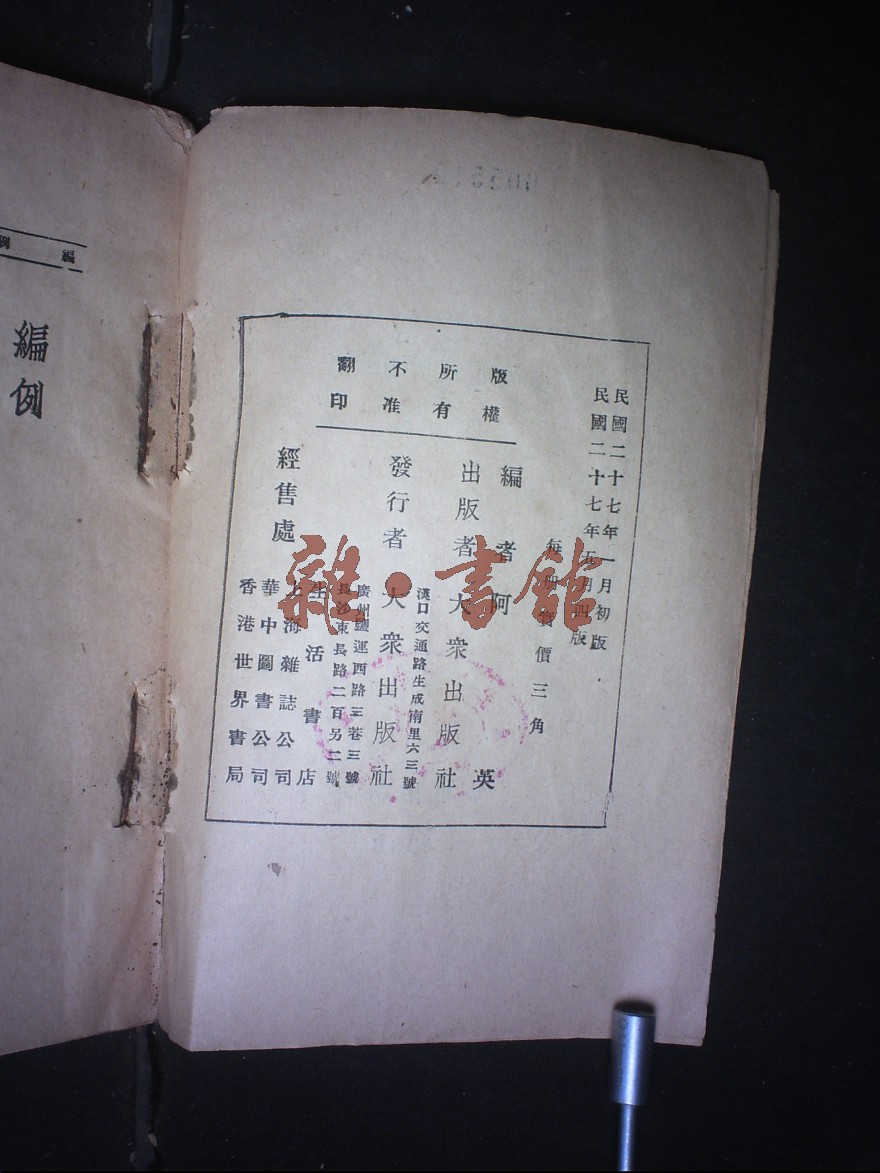 民國二十七年一月初版
民國二十七年五月四版
每冊 價三角
版權所有
不准翻印
編者 阿英
出版者 大衆出版社
漢口交通路生成南里六三號
發行者 大衆出版社
廣州鹽運西路三巷三號
長沙東長路二百另二號
經售處
生活書店
上海雜誌公司
華中圖書公司
香港世界書局
雜·書館
編例
編例